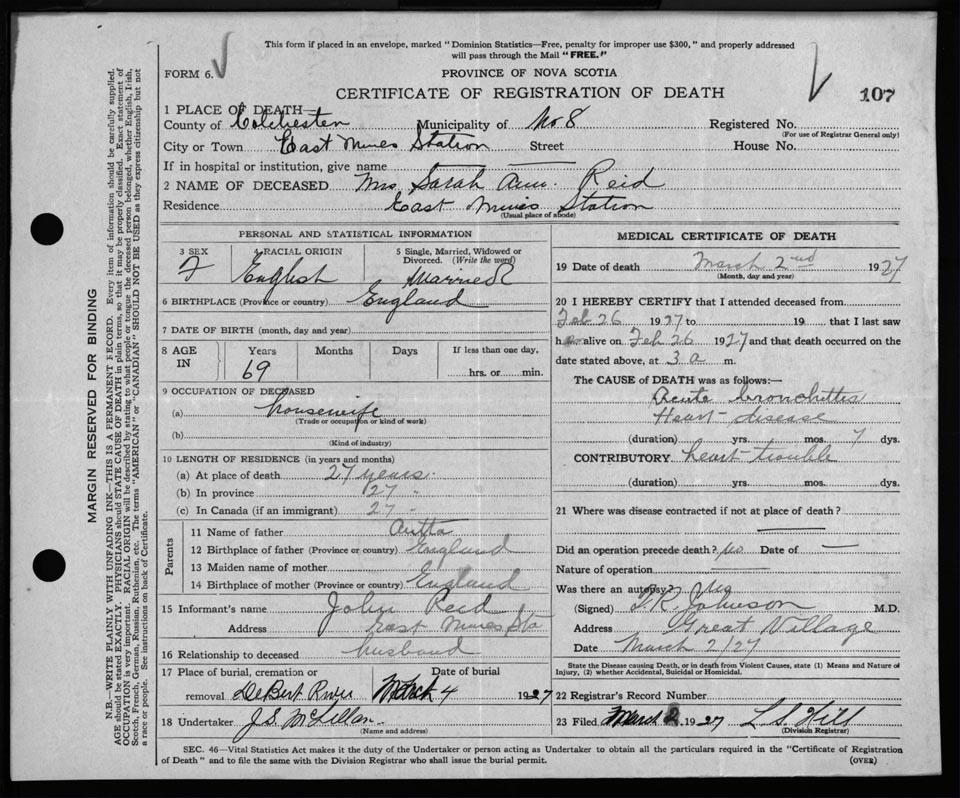 This form if placed in an envelope, marked "Dominion Statistics—Free, penalty for improper use $300," and properly addressed
will pass through the Mail "FREE."
FORM 6.
PROVINCE OF NOVA SCOTIA
CERTIFICATE OF REGISTRATION OF DEATH
107
1 PLACE OF DEATH—
County of Colchester Municipality of No. 8 Registered No.
(For use of Registrar General only)
City or Town East Mines Station Street House No.
If in hospital or institution, give name
2 NAME OF DECEASED Mrs. Sarah Ann. Reid
Residence East Mines Station
(Usual place of abode)
PERSONAL AND STATISTICAL INFORMATION
3 SEX 4 RACIAL ORIGIN 5 Single, Married, Widowed or
Divorced. (Write the word)
F English Married
6 BIRTHPLACE (Province or country) England
7 DATE OF BIRTH (month, day and year)
8 AGE IN Years Months Days If less than one day,
69 hrs. or min.
9 OCCUPATION OF DECEASED
(a) housewife
(Trade or occupation or kind of work)
(b)
(Kind of industry)
10 LENGTH OF RESIDENCE (in years and months)
(a) At place of death 27 years
(b) In province 27 "
(c) In Canada (if an immigrant) 27 "
Parents
11 Name of father
12 Birthplace of father (Province or country) England
13 Maiden name of mother
14 Birthplace of mother (Province or country) England
15 Informant's name John Reid
Address East Mines Sta
16 Relationship to deceased husband
17 Place of burial, cremation or Date of burial
removal DeBert River March 4 1927
18 Undertaker J.S. McLellan
(Name and address)
MEDICAL CERTIFICATE OF DEATH
19 Date of death March 2nd 1927
(Month, day and year)
20 I HEREBY CERTIFY that I attended deceased from
Feb 26 1927 to 19 that I last saw
her alive on Feb 26 1927 and that death occurred on the
date stated above, at 3 a m.
The CAUSE of DEATH was as follows:—
Acute bronchittis
Heart disease
(duration) yrs. mos. 7 dys.
CONTRIBUTORY heart trouble
(duration) yrs. mos. dys.
21 Where was disease contracted if not at place of death?
Did an operation precede death? no Date of —
Nature of operation
Was there an autopsy? No
(Signed) Johnson M.D.
Address Great Village
Date March 2/27
State the Disease causing Death, or in death from Violent Causes, state (1) Means and Nature of
Injury, (2) whether Accidental, Suicidal or Homicidal.
22 Registrar's Record Number
23 Filed March 2 1927 L. S. Hill
(Division Registrar)
SEC. 46—Vital Statistics Act makes it the duty of the Undertaker or person acting as Undertaker to obtain all the particulars required in the "Certificate of Registration
of Death" and to file the same with the Division Registrar who shall issue the burial permit.
(OVER)
MARGIN RESERVED FOR BINDING
N.B.—WRITE PLAINLY WITH UNFADING INK—THIS IS A PERMANENT RECORD. Every item of information should be carefully supplied.
AGE should be stated EXACTLY. PHYSICIANS should STATE CAUSE OF DEATH in plain terms, so that it may be properly classified. Exact statement of
OCCUPATION is very important. RACIAL ORIGIN will be described by stating to what people or tongue the deceased person belonged, whether English, Irish,
Scotch, French, German, Russian, Ruthenian, etc. The terms "AMERICAN" or "CANADIAN" SHOULD NOT BE USED as they express citizenship but not
a race or people. See instructions on back of Certificate.